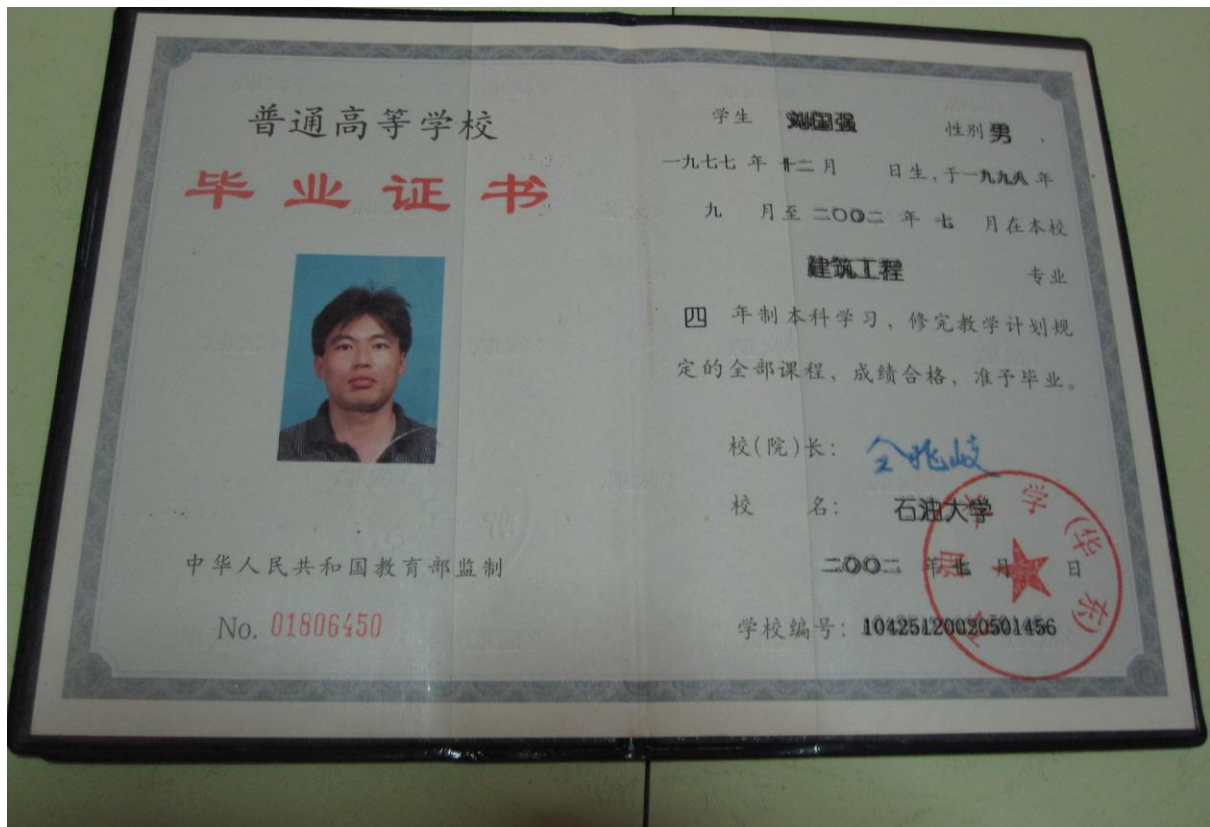 普通高等学校
毕业证书
中华人民共和国教育部监制
No. 01806450
学生 刘国强 性别 男 .
一九七七 年 十二 月 日生, 于一九九八 年
九 月至 二〇〇二 年 七 月在本校
建筑工程 专业
四 年制本科学习, 修完教学计划规
定的全部课程, 成绩合格, 准予毕业。
校(院)长: 仝兆岐
校 名: 石油大学
二〇〇二 年 七 月 日
学校编号: 10425120020501456
石油大学(华东)